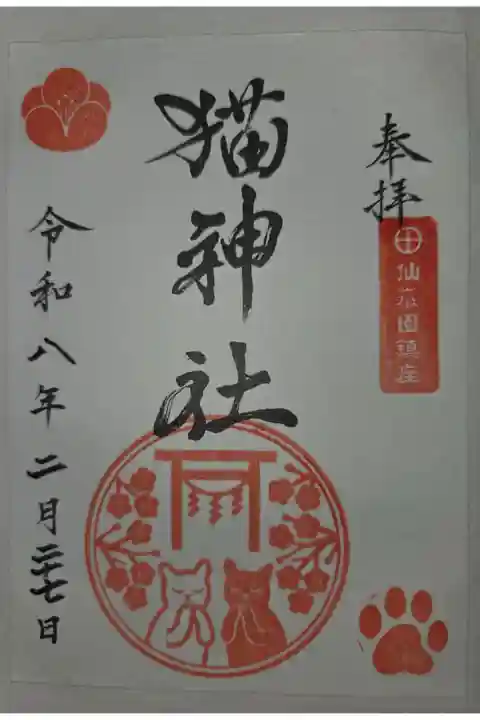 奉拝
仙巌園鎮座
猫神社
令和八年二月二十七日